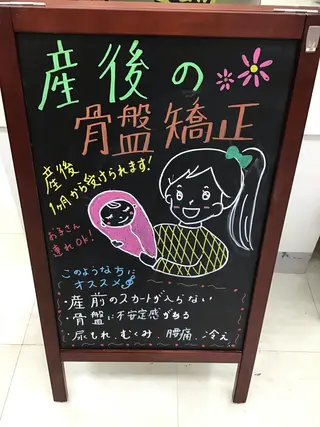 産後の
骨盤矯正
産後
1ヶ月から受けられます!
お子さん
連れOK!
このような方に
オススメ
・産前のスカートが入らない
・骨盤に不安定感がある
・尿もれ、むくみ、腰痛、冷え